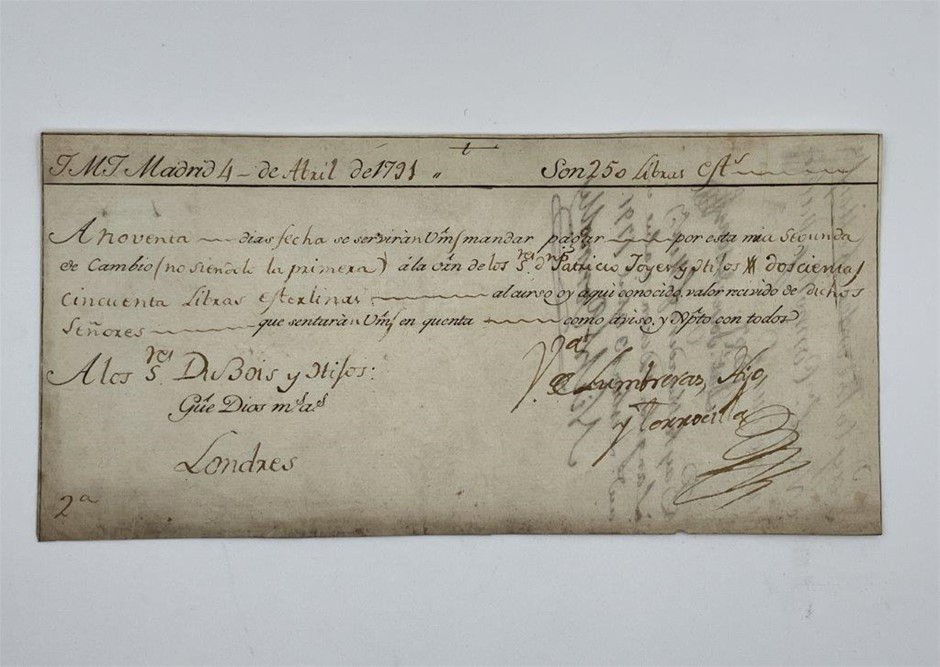 J M J Madrid 4 de Abril de 1791 Son 250 Libras est.s
A noventa dias fecha se serviràn Vms mandar pagar por esta mia Segunda
de Cambio (no siendolo la primera) á la orn de los S.res dn Patricio Joyes y Hijos doscientas
Cincuenta Libras esterlinas al curso oy aqui conocido, valor recivido de dichos
Señores que sentaràn Vms en quenta como aviso, y Xpto con todos
A los S.res DuBois y Hijos:
Gûe Dios ms as
V.da de Lumbreras, Hijo,
y Torrecilla
Londres
2a